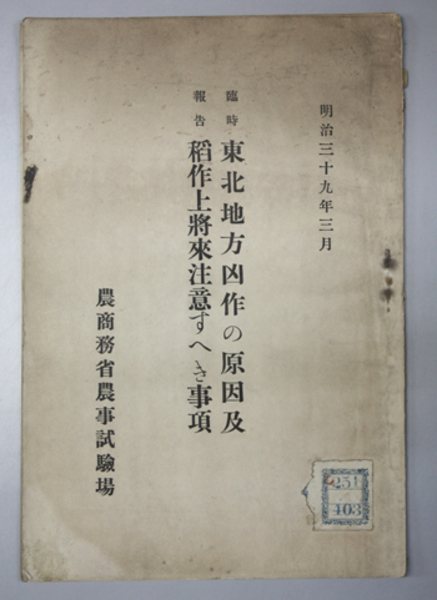 明治三十九年三月
臨時
報告
東北地方凶作の原因及
稻作上將來注意すへき事項
農商務省農事試驗場
251
403